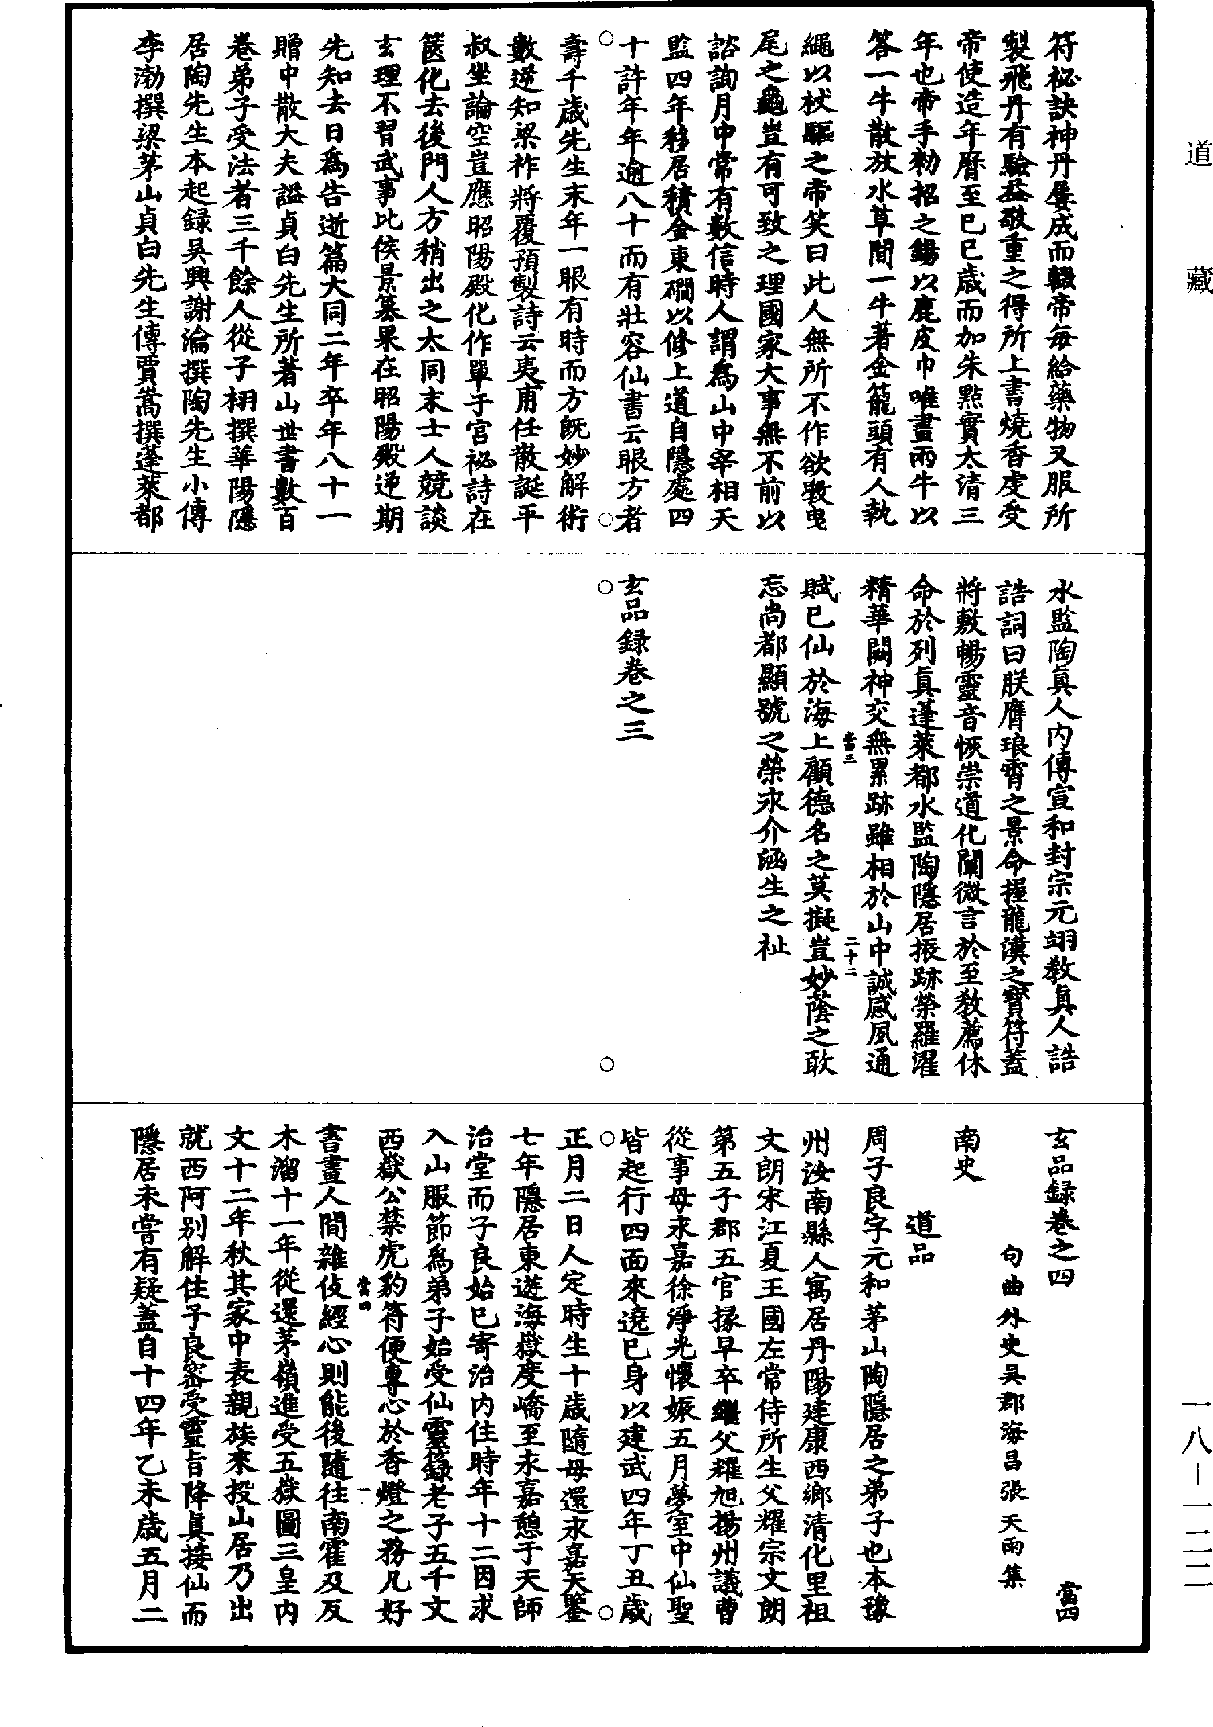 道藏
符祕訣神丹屢成而輟帝每給藥物又服所
製飛丹有驗益敬重之得所上書燒香虔受
帝使造年曆至己巳歲而加朱點實太清三
年也帝手勑招之錫以鹿皮巾唯畫兩牛以
答一牛散放水草間一牛著金籠頭有人執
繩以杖驅之帝笑曰此人無所不作欲斆曳
尾之龜豈有可致之理國家大事無不前以
諮詢月中常有數信時人謂為山中宰相天
監四年移居積金東磵以修上道自隱處四
十許年年逾八十而有壯容仙書云眼方者
壽千歲先生末年一眼有時而方既妙解術
數逆知梁祚將覆預製詩云夷甫任散誕平
叔坐論空豈應昭陽殿化作單于宮祕詩在
篋化去後門人方稍出之太同末士人競談
玄理不習武事比侯景篡果在昭陽殿逆期
先知去日為告逝篇大同二年卒年八十一
贈中散大夫謚貞白先生所著山世書數百
卷弟子受法者三千餘人從子栩撰華陽隱
居陶先生本起錄吳興謝瀹撰陶先生小傳
李渤撰梁茅山貞白先生傳賈嵩撰蓬萊都
水監陶真人內傳宣和封宗元翊教真人誥
誥詞曰朕膺琅霄之景命握龍漢之寶符蓋
將敷暢靈音恢崇道化闡微言於至教薦休
命於列真蓬萊都水監陶隱居振跡榮羅濯
精華闕神交無累跡雖相於山中誠感夙通
當三
二十二
賦已仙於海上顧德名之莫擬豈妙蔭之敢
忘尚都顯號之榮永介涵生之祉
玄品錄卷之三
玄品錄卷之四
當四
句曲外史吳郡海昌張天雨集
南史
道品
周子良字元和茅山陶隱居之弟子也本豫
州汝南縣人寓居丹陽建康西鄉清化里祖
文朗宋江夏王國左常侍所生父耀宗文朗
第五子郡五官掾早卒繼父耀旭揚州議曹
從事母永嘉徐淨光懷娠五月夢室中仙聖
皆起行四面來遶已身以建武四年丁丑歲
正月二日人定時生十歲隨母還永嘉天鑒
七年隱居東遊海嶽度嶠至永嘉憩于天師
治堂而子良始已寄治內住時年十二因求
入山服節為弟子始受仙靈籙老子五千文
西嶽公禁虎豹符便專心於香燈之務凡好
當四
一
書畫人間雜伎經心則能後隨往南霍及反
木溜十一年從還茅嶺進受五嶽圖三皇內
文十二年秋其家中表親族來投山居乃出
就西阿別解住子良密受靈旨降真接仙而
隱居未嘗有疑蓋自十四年乙未歲五月二
一八—一二二